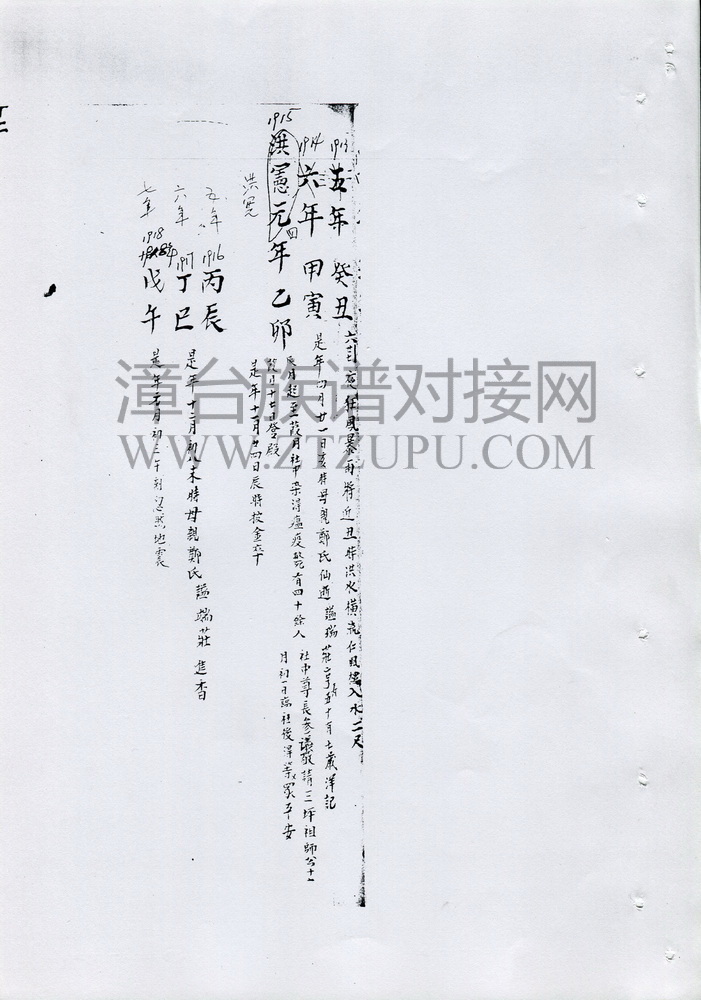 1913
五年 癸丑
夜狂風暴雨將近丑時洪水橫流 入水二尺
1914
六年 甲寅
是年四月廿一日亥時母親鄭氏仙逝謚瑞莊 享壽五十有七歲澤記
1915
洪憲元年 乙卯
四
月起至 月社中染得瘟疫斃有四十餘人
社中尊長參議敬請三坪祖師公十一
月初一日 社後澤等眾平安
月十七日登殿
是年十一月廿四日辰時按金 
洪憲
五年
1916
丙辰
六年
1917
丁巳
是年十二月初八未時母親鄭氏謚端莊進香
七年
1918
戊午
是年元月初三午刻忽然地震
漳台族谱对接网
WWW.ZTZUPU.COM